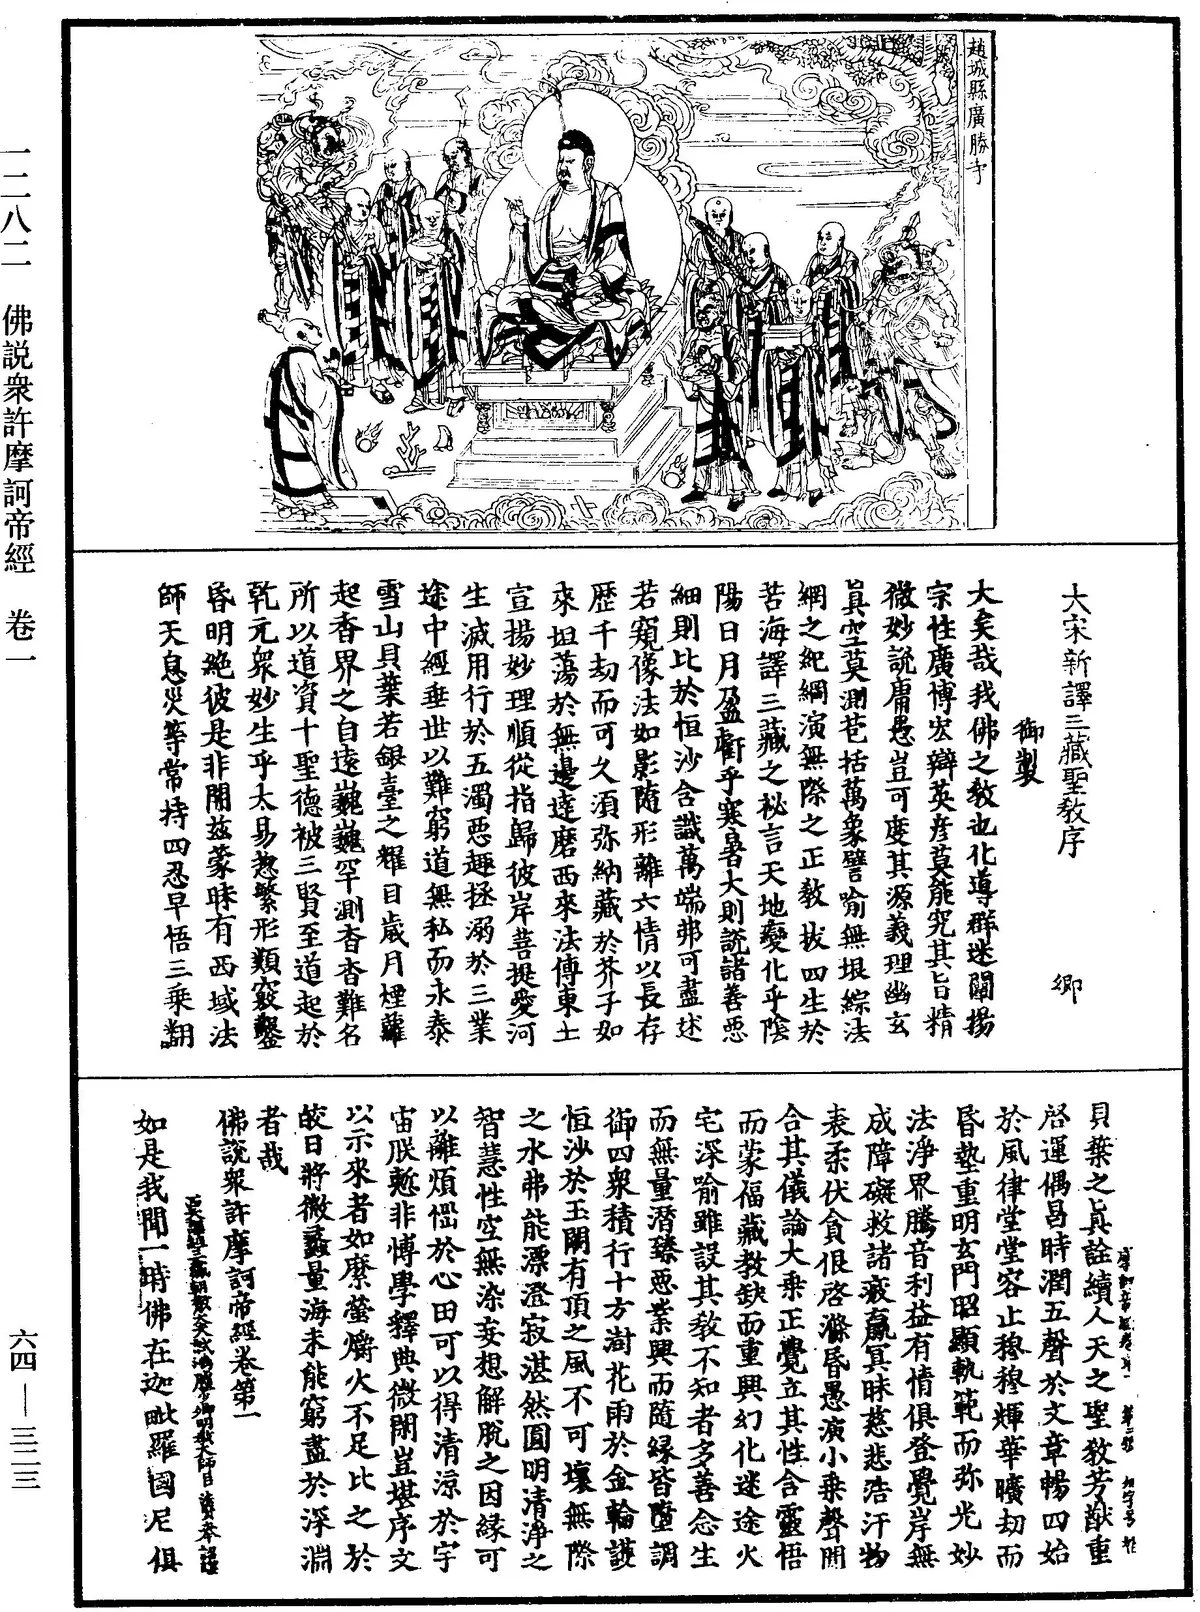 趙城縣廣勝寺
大宋新譯三藏聖教序 郷
御製
大矣哉我佛之教也化導群迷闡揚
宗性廣博宏辯英彦莫能究其旨精
微妙説庸愚豈可度其源義理幽玄
真空莫測苞括萬象譬喻無垠綜法
網之紀綱演無際之正教拔四生於
苦海譯三藏之秘言天地變化乎陰
陽日月盈虧乎寒暑大則説諸善惡
細則比於恒沙含識萬端弗可盡述
若窺像法如影隨形離六情以長存
歷千劫而可久須弥納藏於芥子如
來坦蕩於無邊達磨西來法傳東土
宣揚妙理順從指歸彼岸菩提愛河
生滅用行於五濁惡趣拯溺於三業
途中經垂世以難窮道無私而永泰
雪山貝葉若銀臺之耀目歲月煙蘿
起香界之自遠巍巍罕測杳杳難名
所以道資十聖德被三賢至道起於
乾元衆妙生乎太易惣繁形類竅鑿
昏明絶彼是非開兹蒙昧有西域法
師天息災等常持四忍早悟三乘翻
貝葉之真詮續人天之聖教芳猷重
啓運偶昌時潤五聲於文章暢四始
於風律堂堂容止穆穆輝華曠劫而
昏墊重明玄門昭顯軌範而弥光妙
法淨界騰音利益有情俱登覺岸無
成障礙救諸疲羸冥昧慈悲浩汗物
表柔伏貪很啓滌昏愚演小乘聲聞
合其儀論大乘正覺立其性含靈悟
而蒙福藏教缺而重興幻化迷途火
宅深喻雖設其教不知者多善念生
而無量潜臻惡業興而隨縁皆墮調
御四衆積行十方澍花雨於金輪護
恒沙於玉闕有頂之風不可壞無際
之水弗能漂澄寂湛然圓明清淨之
智慧性空無染妄想解脱之因縁可
以離煩惱於心田可以得清涼於宇
宙朕慙非博學釋典微閑豈堪序文
以示來者如縻螢爝火不足比之於
皎日將微蠡量海未能窮盡於深淵
者哉
佛説衆許摩訶帝經卷第一
如是我聞一時佛在迦毗羅國尼俱
一二八二 佛説衆許摩訶帝經 卷一
六四—三二三